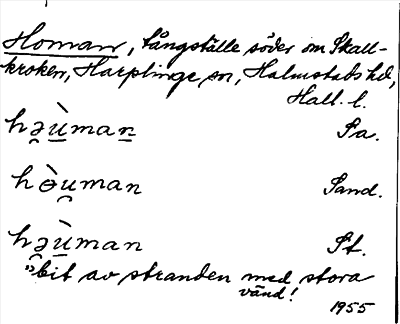 Homan, tångställe söder om Skall-
kroken, Harplinge sn, Halmstads hd,
Hall. l.
hə̯̀u̲man̲ Sa.
hə̀u̯man Sand.
hə̯ù̲man St.
"bit av stranden med stora
vänd!
1955